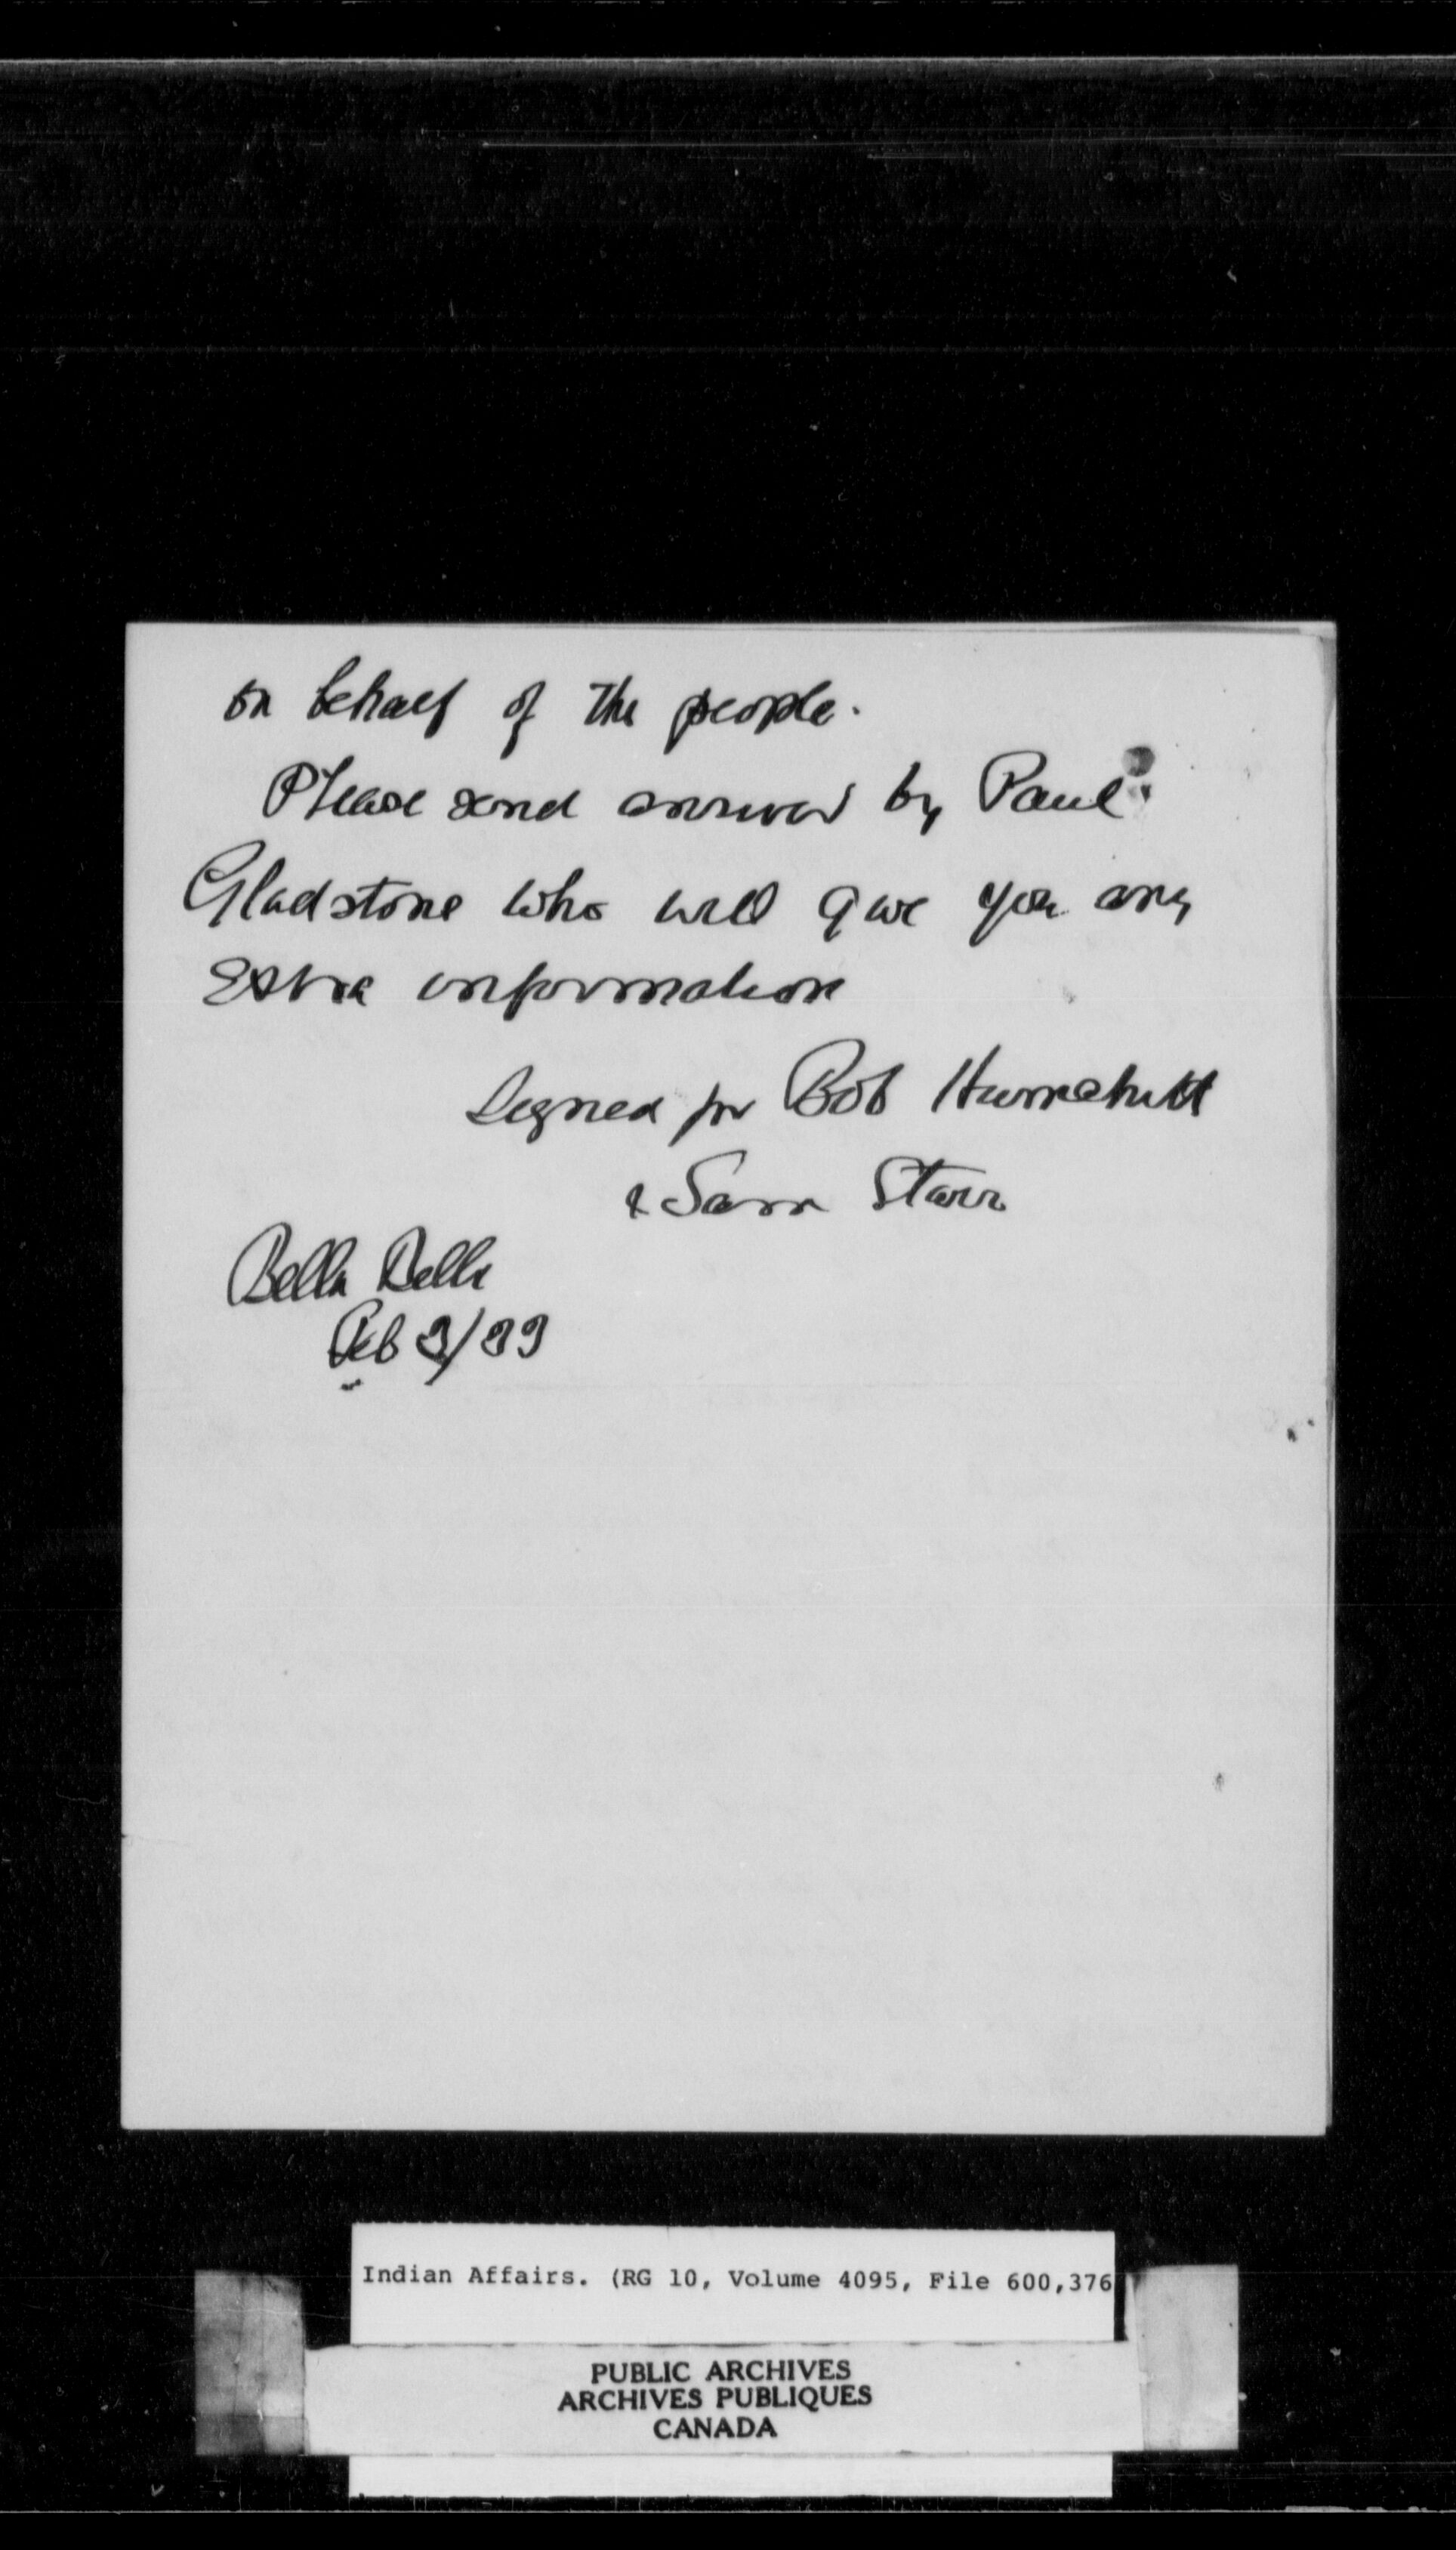 on behalf of the people.
Please send answer by Paul
Gladstone who will give you any
Extra information
Signed for Bob Humchitt
& Sam Starr
Bella Bella
Feb
Indian Affairs. (RG 10, Volume 4095, File 600,376
PUBLIC ARCHIVES
ARCHIVES PUBLIQUES
CANADA